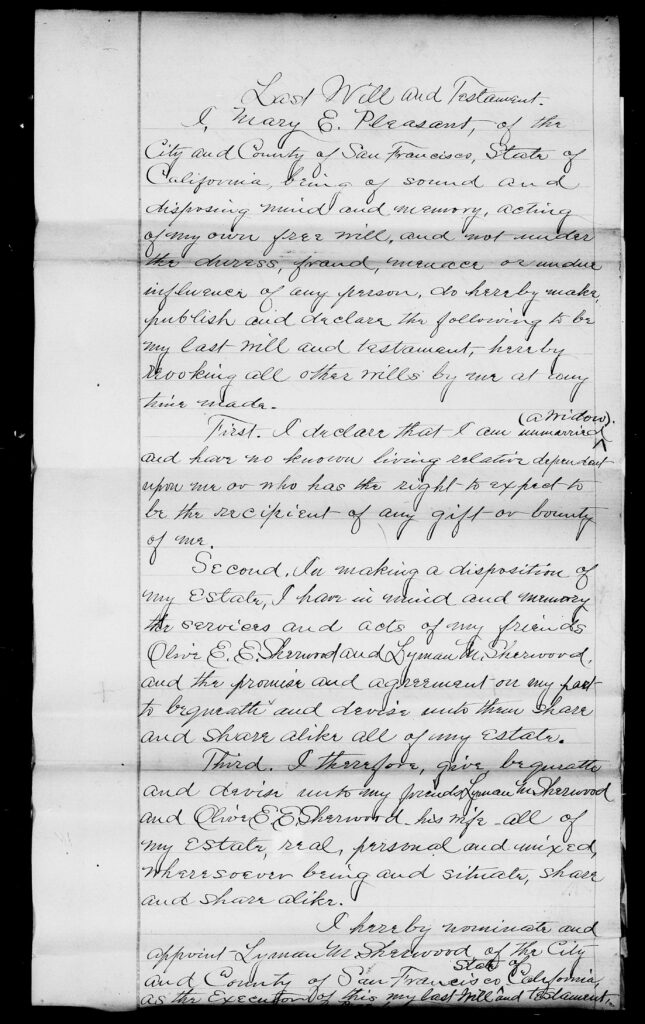 Last Will and Testament.
I, Mary E. Pleasant, of the
City and County of San Francisco, State of
California, being of sound and
disposing mind and memory, acting
of my own free will, and not under
the duress, fraud, menace or undue
influence of any person, do hereby make,
publish and declare the following to be
my last will and testament, hereby
revoking all other wills by me at any
time made.
(a widow).
First. I declare that I am unmarried
and have no known living relative dependent
upon me or who has the right to expect to
be the recipient of any gift or bounty
of me.
Second. In making a disposition of
my Estate, I have in mind and memory
the services and acts of my friends
Olive E. E. Sherwood and Lyman M. Sherwood,
and the promise and agreement on my part
to bequeath and devise unto them share
and share alike all of my Estate.
Third. I therefore, give bequeath
and devise unto my friends Lyman M Sherwood
and Olive E. E. Sherwood his wife all of
my Estate, real, personal and mixed,
wheresoever being and situate, share
and share alike.
I hereby nominate and
appoint Lyman M. Sherwood of the City
State of
and County of San Francisco California,
as the Executor of this my last Will and testament,